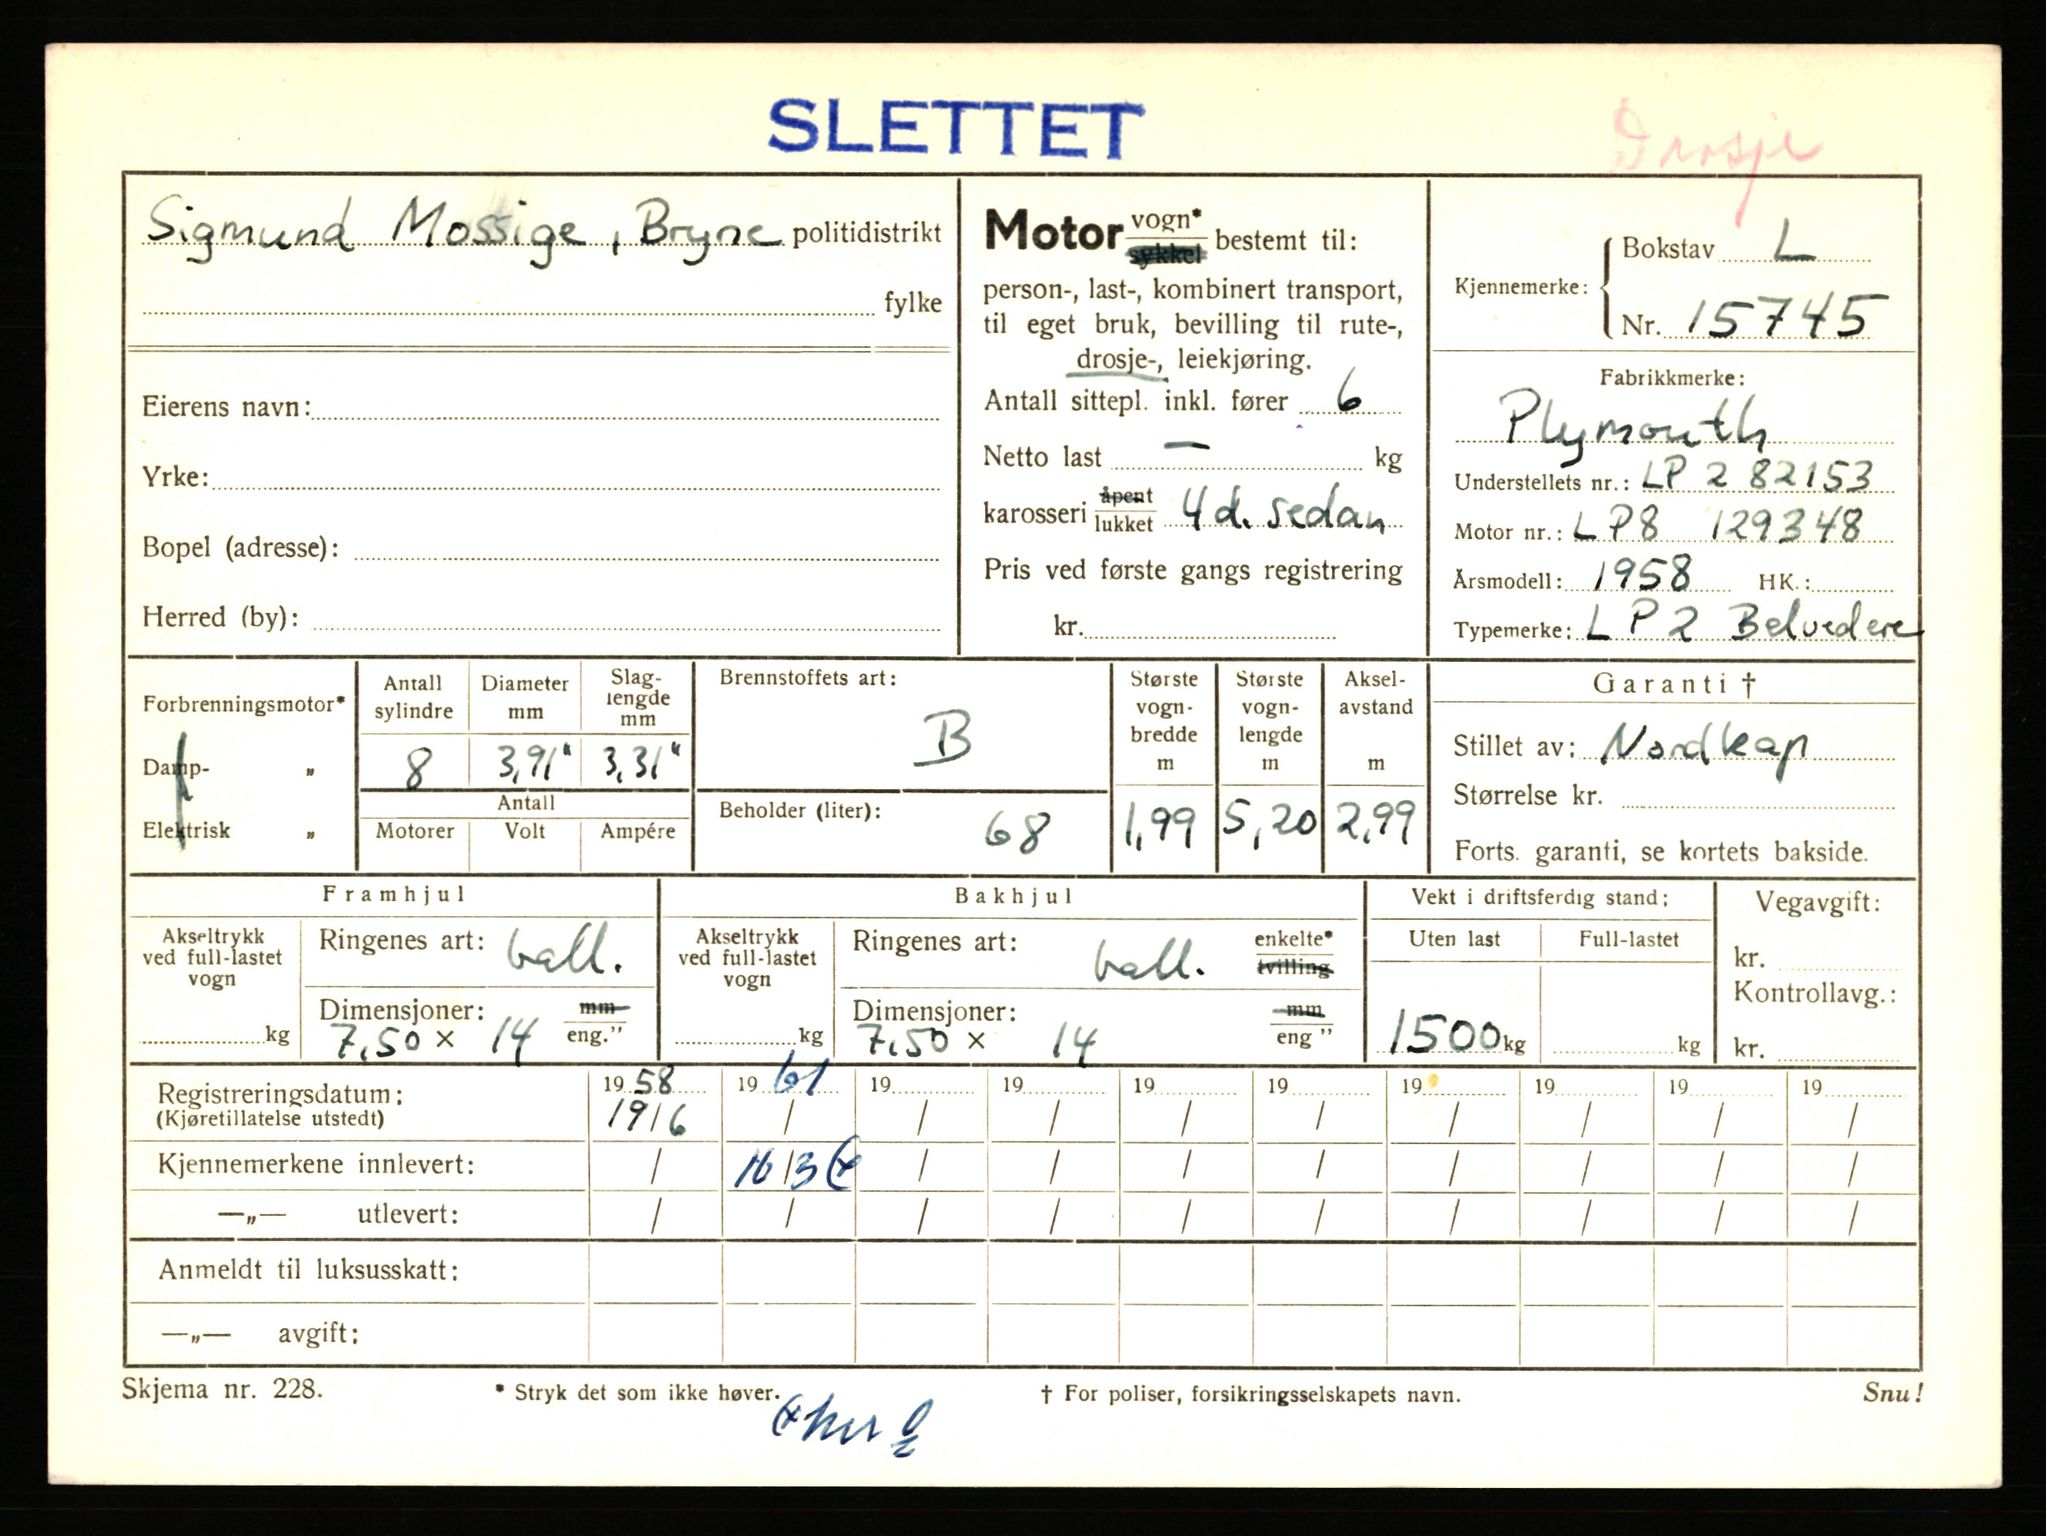 SLETTET
Drosje
Sigmund Mossige, Bryne politidistrikt
fylke
Eierens navn:
Yrke:
Bopel (adresse):
Herred (by):
Motor vogn* sykkel bestemt til:
person-, last-, kombinert transport,
til eget bruk, bevilling til rute-,
drosje-, leiekjøring.
Antall sittepl. inkl. fører 6
Netto last — kg
karosseri åpent lukket 4 d. sedan
Pris ved første gangs registrering
kr.
Kjennemerke: Bokstav L
Nr. 15745
Fabrikkmerke:
Plymouth
Understellets nr.: LP 2 82153
Motor nr.: LP8 129348
Årsmodell: 1958 HK.:
Typemerke: LP2 Belvedere
Forbrenningsmotor*
Damp- „
Elektrisk „
Antall sylindre
Diameter mm
Slag-lengde mm
8 3,91" 3,31"
Antall
Motorer Volt Ampére
Brennstoffets art:
B
Beholder (liter):
68
Største vogn-bredde m
1,99
Største vogn-lengde m
5,20
Aksel-avstand m
2,99
Garanti †
Stillet av: Nordkap
Størrelse kr.
Forts. garanti, se kortets bakside.
Framhjul
Akseltrykk ved full-lastet vogn
kg
Ringenes art: ball.
Dimensjoner: mm
7,50 × 14 eng."
Bakhjul
Akseltrykk ved full-lastet vogn
kg
Ringenes art: ball. enkelte* tvilling
Dimensjoner: mm
7,50 × 14 eng "
Vekt i driftsferdig stand:
Uten last Full-lastet
1500 kg kg
Vegavgift:
kr.
Kontrollavg.:
kr.
Registreringsdatum: 19 58 19 61 19 19 19 19 19 19 19 19
(Kjøretillatelse utstedt) 19/6 / / / / / / / / /
Kjennemerkene innlevert: / 16/3 (x / / / / / / / /
—„— utlevert: / / / / / / / / / /
Anmeldt til luksusskatt:
—„— avgift:
Skjema nr. 228. * Stryk det som ikke høver. † For poliser, forsikringsselskapets navn. Snu!
(x her